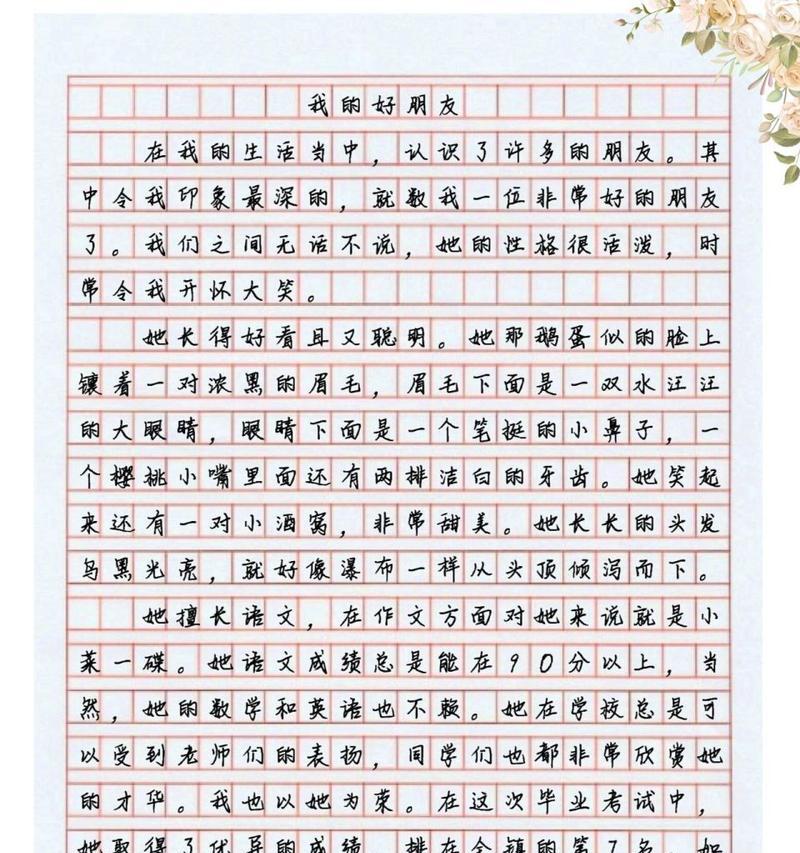 我的好朋友
在我的生活当中，认识了许多的朋友。其
中令我印象最深的，就数我一位非常好的朋友
了。我们之间无话不说，她的性格很活泼，时
常令我开怀大笑。
她长得好看且又聪明。她那鹅蛋似的脸上
镶着一对浓黑的眉毛，眉毛下面是一双水汪汪
的大眼睛，眼睛下面是一个笔挺的小鼻子，一
个樱桃小嘴里面还有两排洁白的牙齿。她笑起
来还有一对小酒窝，非常甜美。她长长的头发
乌黑光亮，就好像瀑布一样从头顶倾泻而下。
她擅长语文，在作文方面对她来说就是小
菜一碟。她语文成绩总是能在90分以上，当
然，她的数学和英语也不赖。她在学校总是可
以受到老师们的表扬，同学们也都非常欣赏她
的才华。我也以她为荣。在这次毕业考试中，
她取得了优异的成绩，排在全镇的第7名，如